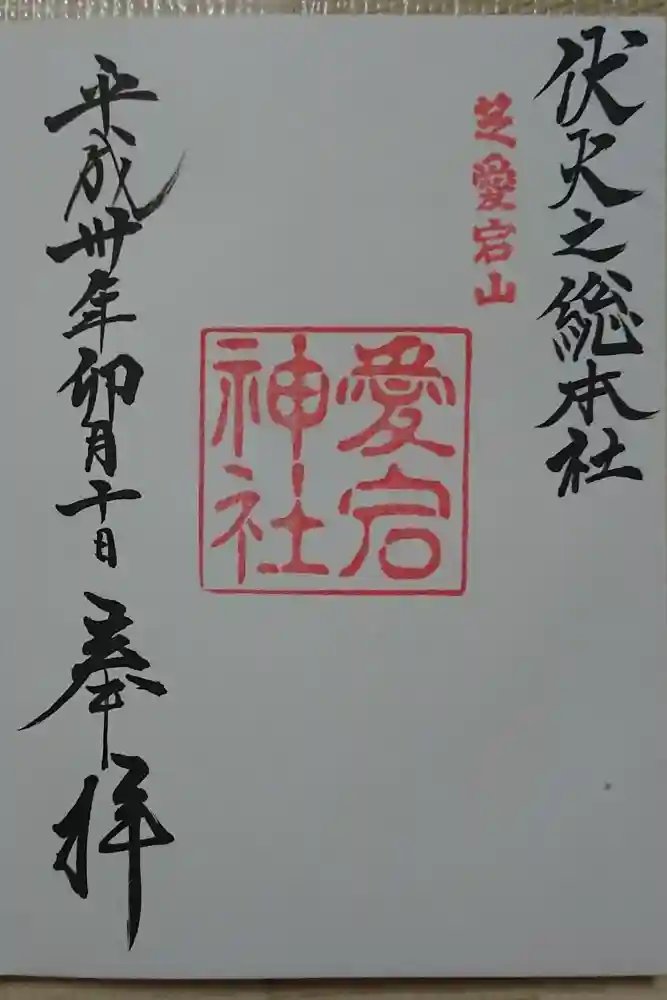 伏火之総本社
芝愛宕山
愛宕
神社
平成卅年卯月十日 奉拝